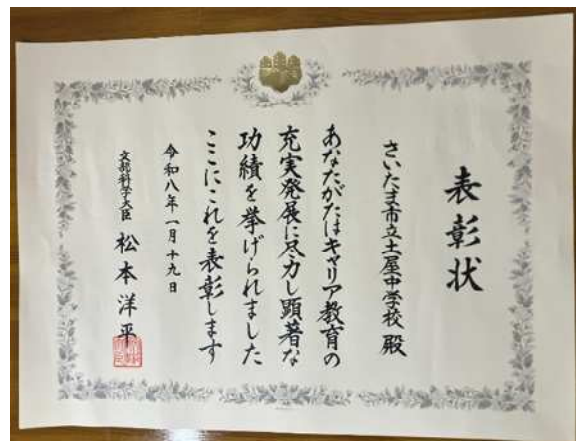 表彰状
さいたま市立土屋中学校 殿
あなたがたはキャリア教育の
充実発展に尽力し顕著な
功績を挙げられました
ここにこれを表彰します
令和八年一月十九日
文部科学大臣 松本洋平